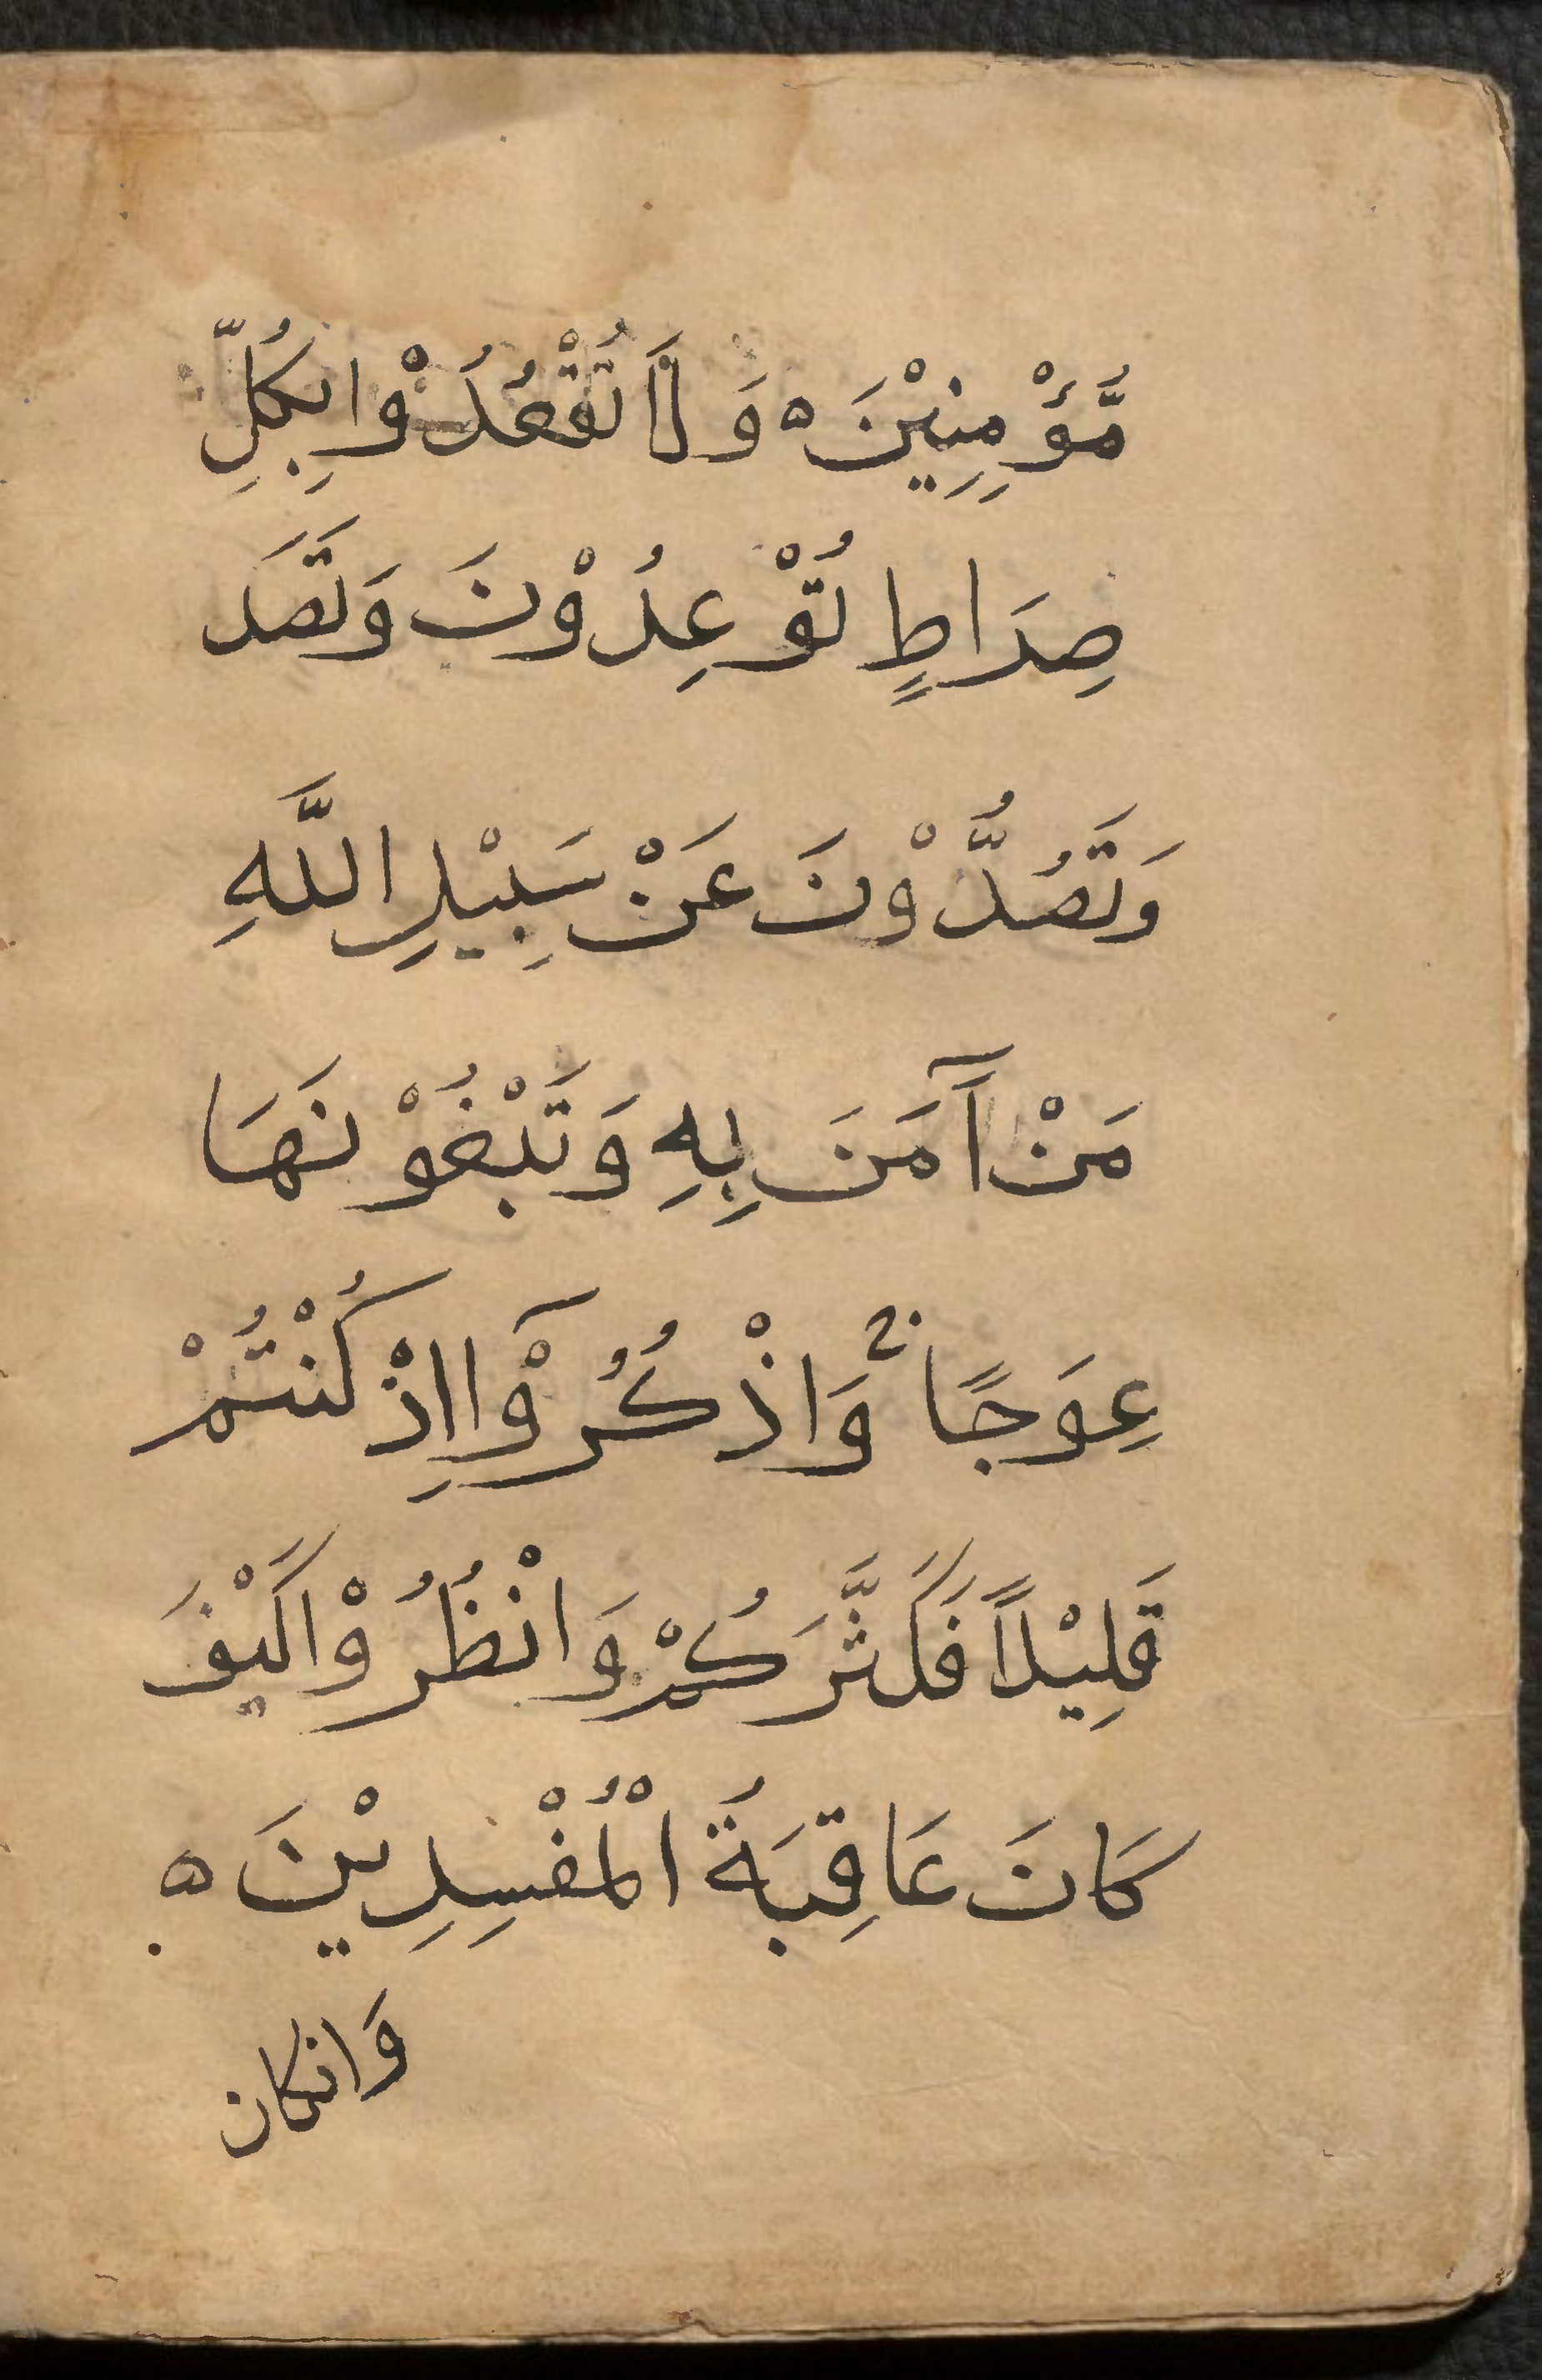 مُّؤْمِنِيْنَ ه وَلَا تُقْعُدُوْا بِكُلِّ
صِرَاطٍ تُوْعِدُوْنَ وَتَصَد
وَتَصُدُّوْنَ عَنْ سَبِيْلِ اللَّهِ
مَنْ آمَنَ بِهِ وَتَبْغُوْنَهَا
عِوَجًا ج وَاذْكُرُوْٓا اِذْ كُنْتُمْ
قَلِيْلًا فَكَثَّرَكُمْ وَانْظُرُوْا كَيْفَ
كَانَ عَاقِبَةُ الْمُفْسِدِيْنَ ه
وَانكان